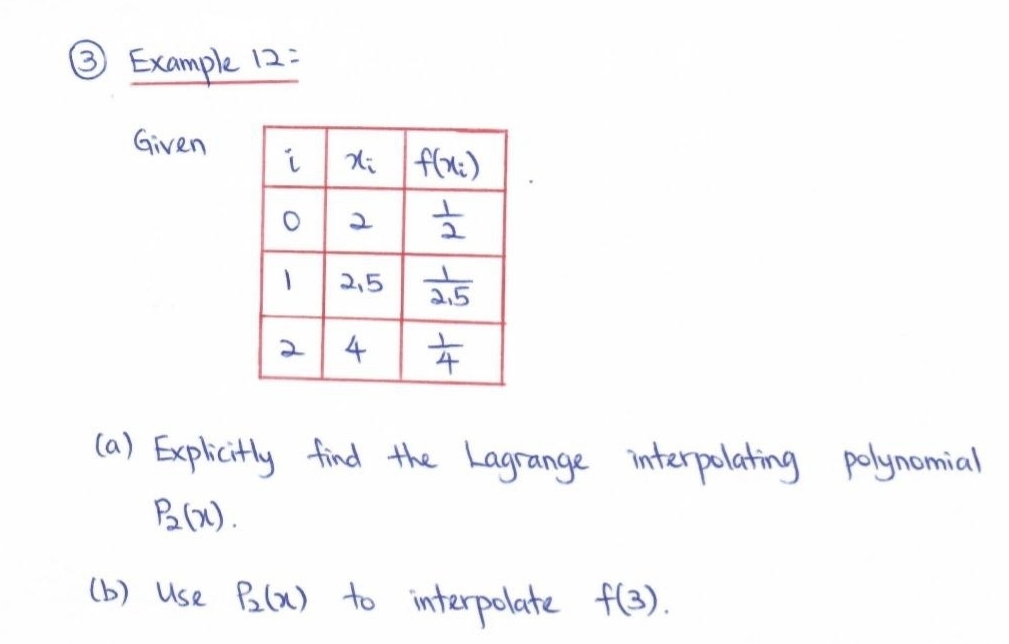 ③ Example 12:
Given
i xi f(xi)
0 2 1/2
1 2,5 1/2,5
2 4 1/4
(a) Explicitly find the Lagrange interpolating polynomial
P₂(x).
(b) Use P₂(x) to interpolate f(3).